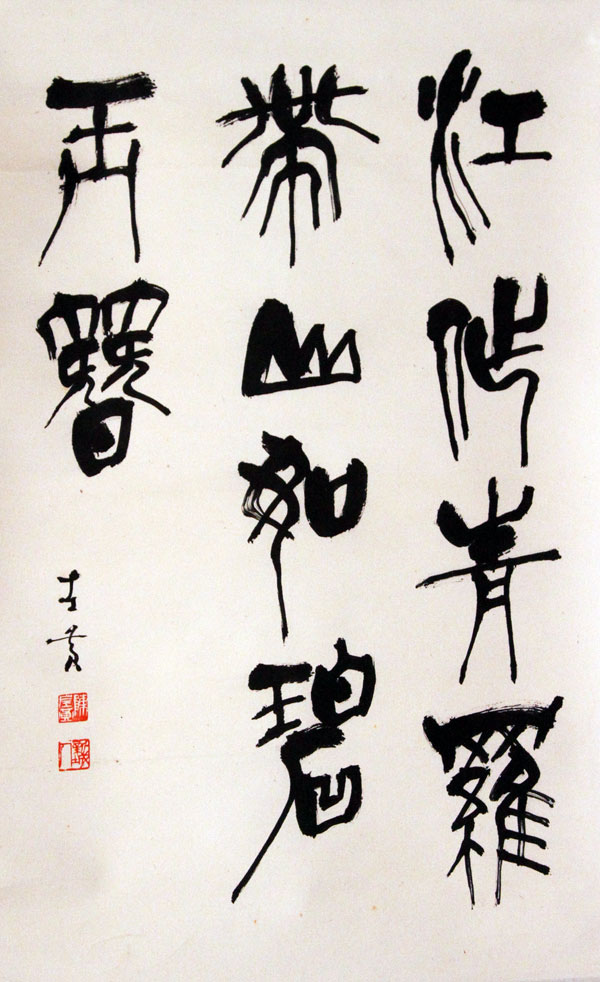 江作青羅
帶山如碧
玉簪